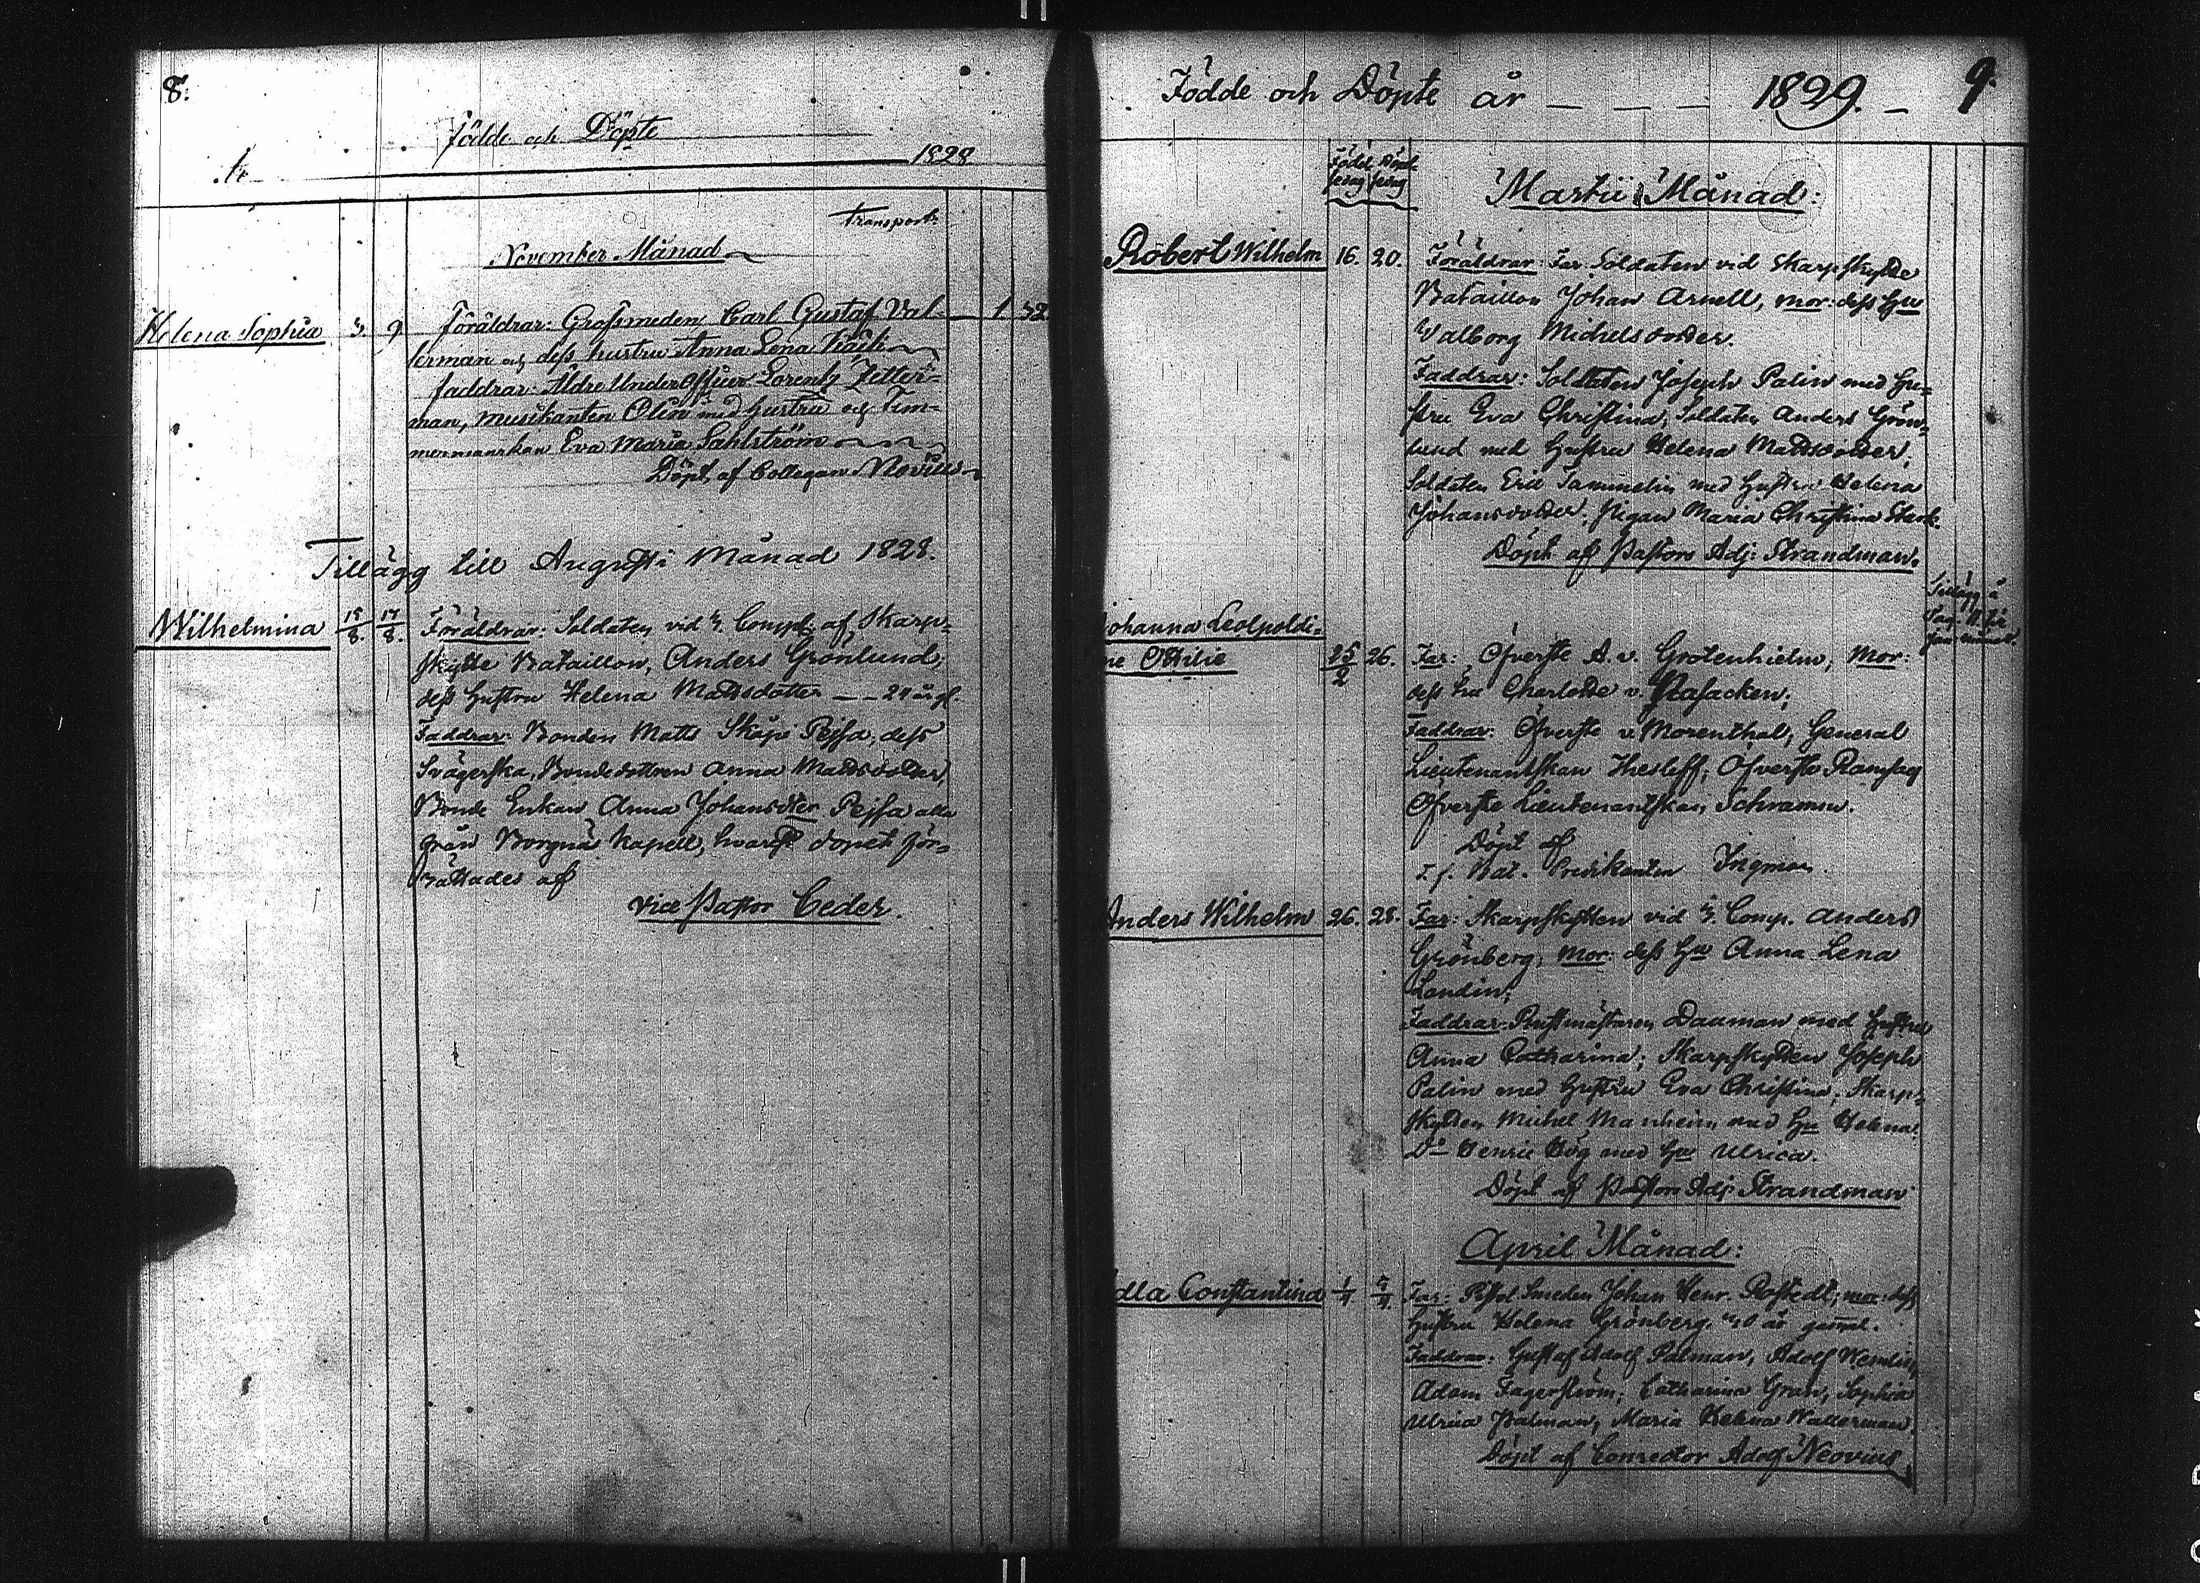 8.
Födde och Döpte
År 1828
Transport:
November Månad
Helena Sophia 3. 9 Föräldrar: Grofsmeden Carl Gustaf Val- 1 32
lerman och dess hustru Anna Lena
Faddrar: Äldre Under Officer Lorentz Zetter-
man, Musikanten Olin med hustru och Tim-
mermanskan Eva Maria Sahlström
Döpt af Collegan Novius
Tillägg till Augusti Månad 1828.
Wilhelmina 15/8 17/8. Föräldrar: Soldaten vid 3. Comp: af Skarp-
skytte Bataillon, Anders Grönlund,
dess hustru Helena Mattsdotter — 24 år gl.
Faddrar: Bonden Matts Skäpi Pejsa, dess
Svägerska, Bondedottren Anna Mattsdotter,
Bonde Enkan Anna Johansdter Pejsa alla
från Borgnäs Kapell, hvarest dopet för-
rättades af
Vice Pastor Ceder.
Födde och Döpte år — — — 1829. — 9.
Födel- Döpel-
sedag sedag
Martii Månad:
Robert Wilhelm 16. 20. Föräldrar: Far: Soldaten vid Skarpskytte
Bataillon Johan Arnell, Mor: dess Hu
Valborg Michelsdotter.
Faddrar: Soldaten Joseph Palin med Hu-
stru Eva Christina, Soldaten Anders Grön-
lund med Hustru Helena Mattsdotter,
Soldaten Eric Tammelin med Hustru Helena
Johansdotter, Pigan Maria Christina Stark.
Döpt af Pastors Adj: Strandman.
Tillägg å
Pag. 11 få
Johanna Leolpoldi-
ne Ottilie 25/2 26. Far: Öfverste A. v. Grotenhielm, Mor:
dess Fru Charlotte v. Knasacken;
Faddrar: Öfverste v. Morenthal, General
Lieutenantskan Thesleff, Öfverste Ramsay
Öfverste Lieutenantskan Schramm.
Döpt af
t.f. Bat. Predikanten Ingman.
Anders Wilhelm 26. 28. Far: Skarpskytten vid 3. Comp. Anders
Grönberg, Mor: dess Hu Anna Lena
Landin;
Faddrar: Rustmästaren Dauman med Hustru
Anna Catharina; Skarpskytten Joseph
Palin med Hustru Eva Christina, Skarp-
skytten Michel Manheim med Hu Helena.
Do Henric Hög med Hu Ulrica.
Döpt af Pastors Adj: Strandman
April Månad:
Edla Constantina 1/4 5/4. Far: Pistol Smeden Johan Henr. Rostedt, mor: dess
Hustru Helena Grönberg, 40 år gammal.
Faddrar: Gustaf Adolf Palman, Adolf Wemlin,
Adam Fagerström; Catharina Gran, Sophia
Ulrica Palman, Maria Helena Wallerman.
Döpt af Conrector Adolf Neovius